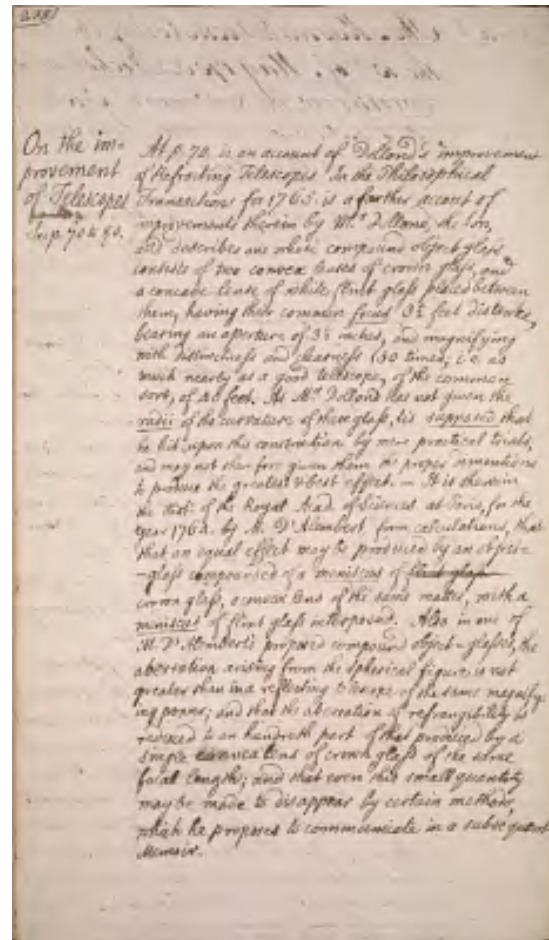 On the im-
provement
of Telescopes
At p. 70. is an account of Dollond's improvement
of Refracting Telescopes. In the Philosophical
Transactions for 1765. is a farther account of
improvements therein by Mr. Dollond, the son,
and describes one whose compound object glass
consists of two convex lenses of crown glass, and
a concave lense of white flint glass placed between
them, having their common focus 3½ feet distance,
bearing an aperture of 3½ inches, and magnifying
with distinctness and clearness 150 times; i.e. as
much nearly as a good telescope, of the common
sort, of 40 feet. As Mr. Dollond has not given the
radii of the curvature of these glass, tis supposed that
he hit upon this construction by mere practical trials,
and may not therefore given them the proper
to produce the greatest & best effect. — It is
the of the Royal Acad. of Sciences at Paris, for the
year 1764. by M. D'Alembert from calculations, that
that an equal effect may be produced by an object-
-glass compounded of a meniscus of flint glass
crown glass, a convex lens of the same matter, with a
meniscus of flint glass interposed. Also in one of
M. D'Alembert's proposed compound object-glasses, the
aberration arising from the spherical figure is not
greater than in a reflecting telescope of the same magnify-
ing power; and that the aberration of refrangibility is
reduced to an hundreth part of that produced by a
simple convex lens of crown glass of the same
focal length; and that even this small quantity
may be made to disappear by certain methods,
which he proposes to communicate in a subsequent
Memoir.